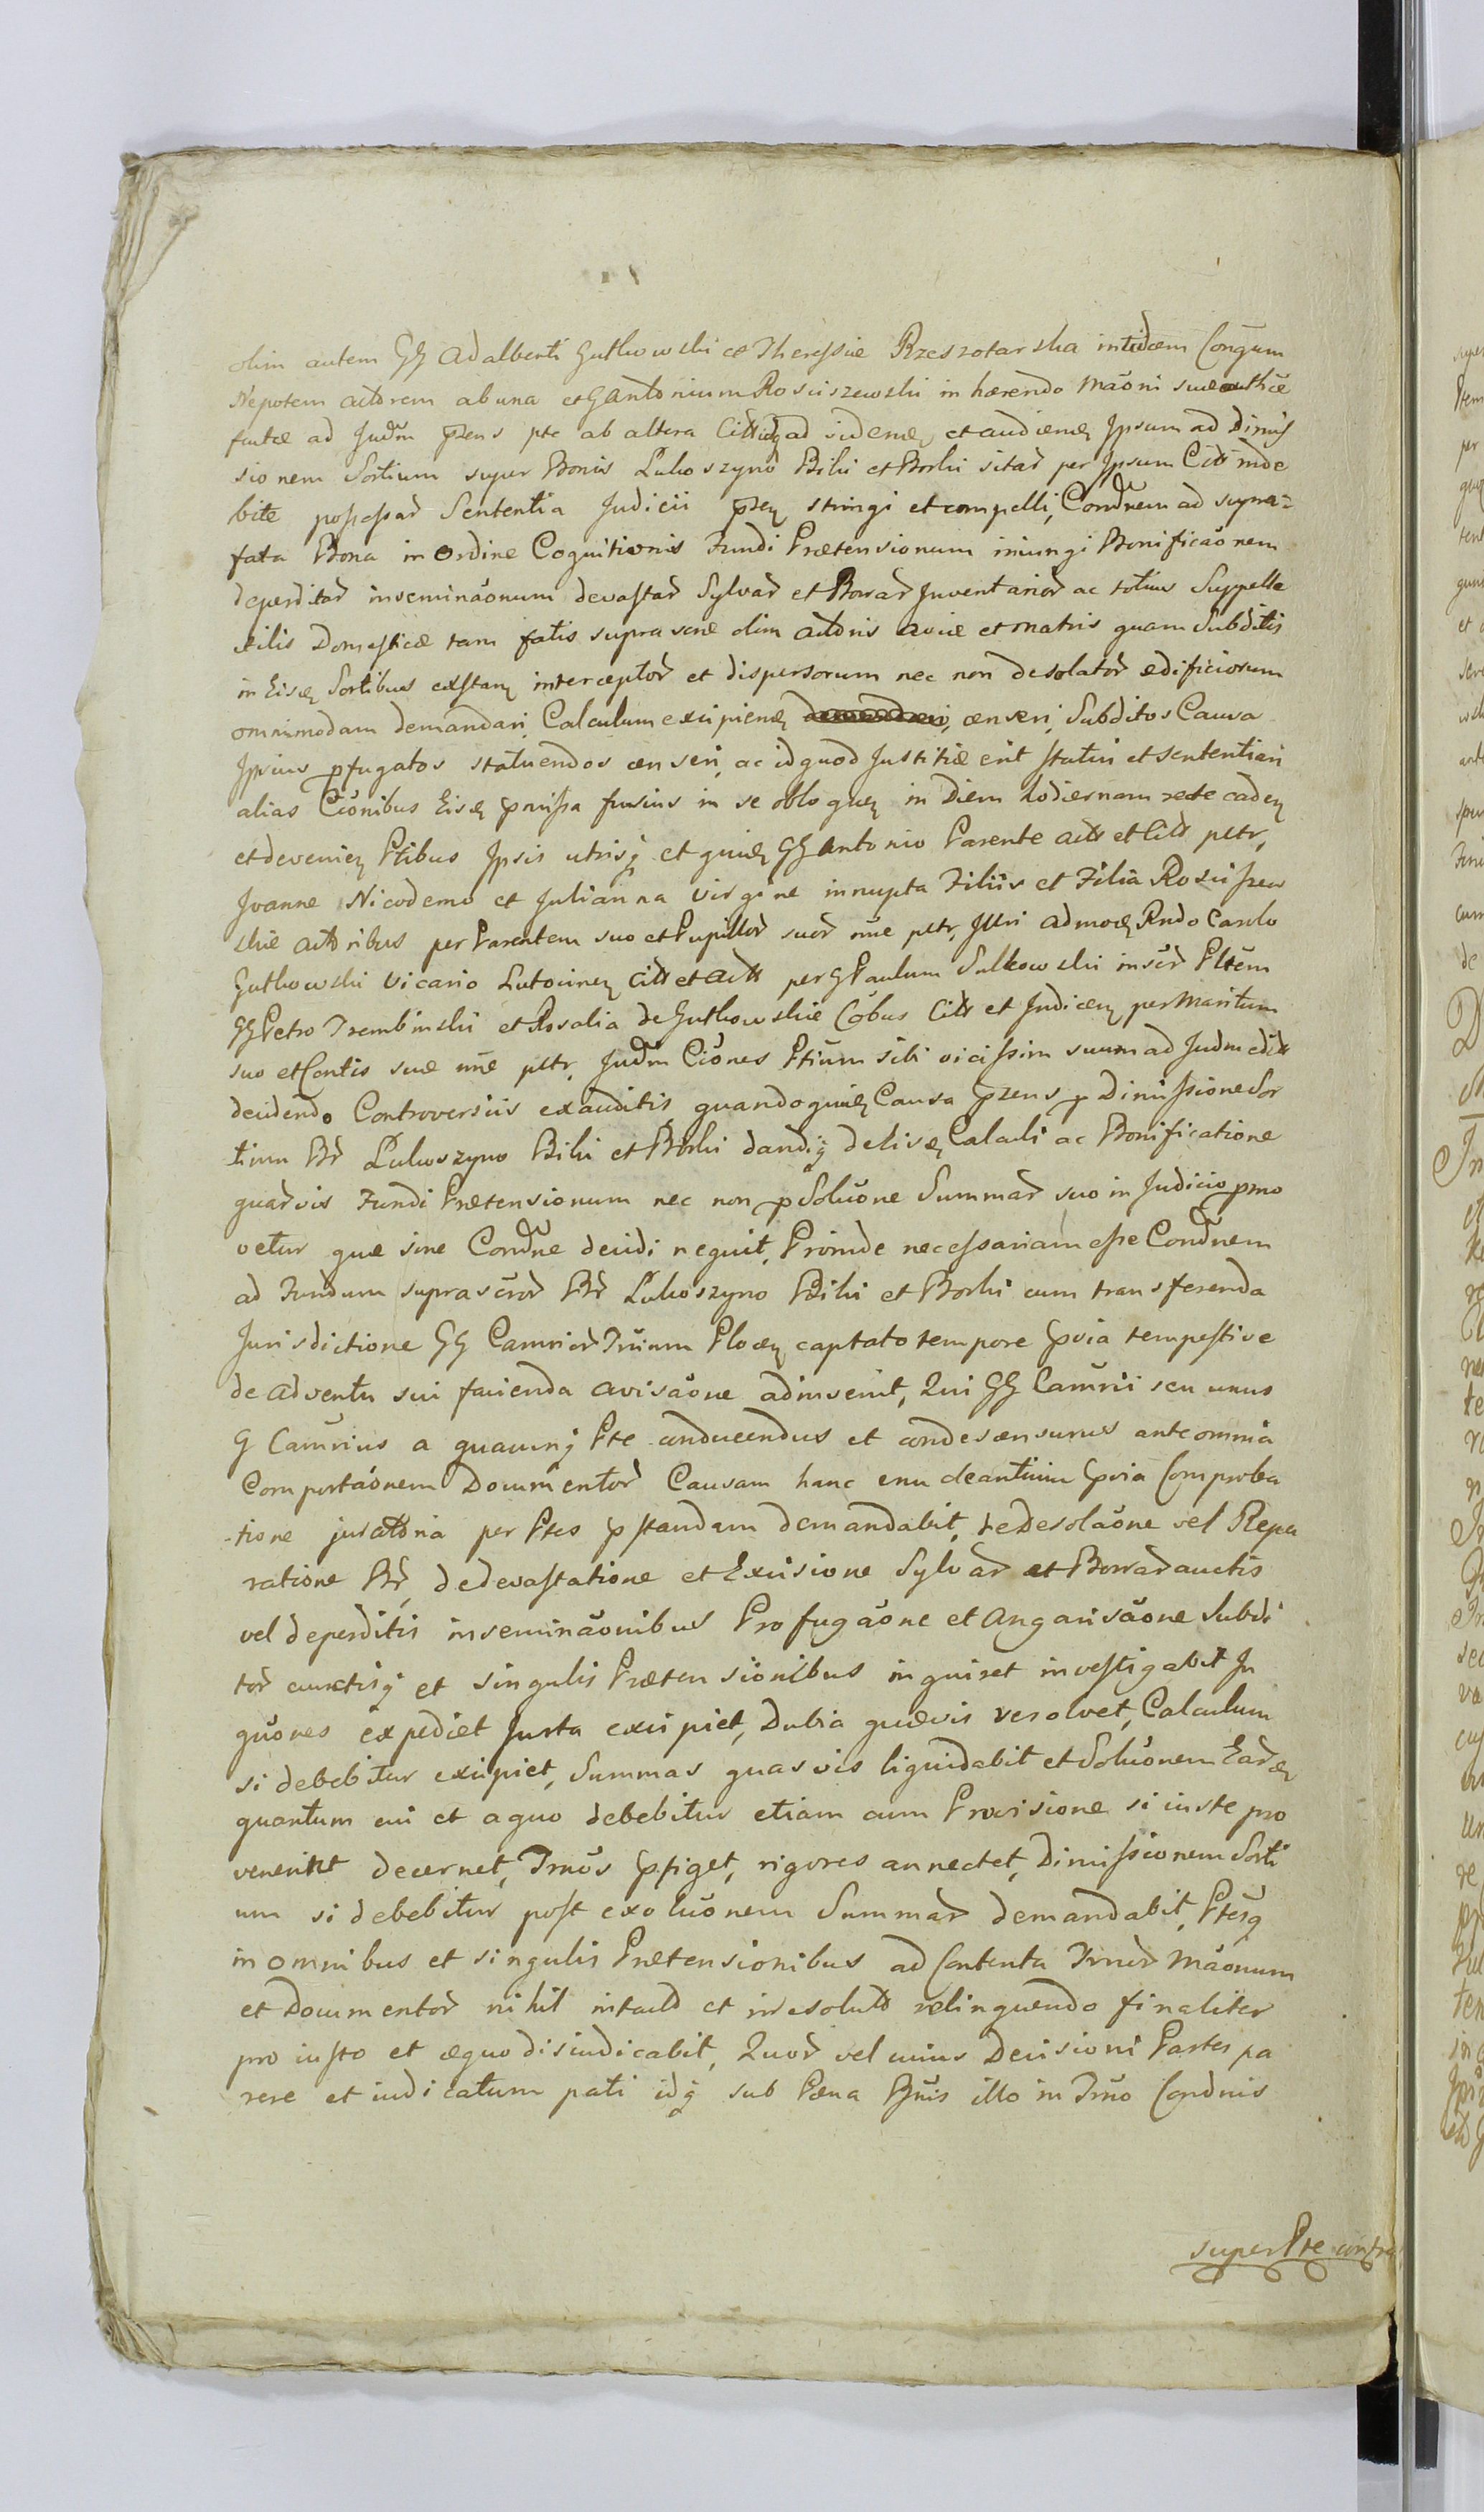 olim autem GG Adalberti Gutkowski et Theressiæ Rzeszotarska intdem Congum
Nepotem actorem ab una et G Antonium Rosciszewski in hærendo mãoni suæ authcæ
factæ ad Judm p̄ns pte ab altera Cittũq ad videnḋ et audienḋ Ipsum ad Dimiſ
sionem Sortium super Bonis Lukoszyno Biki et Borki sitar̃ per Ipsum Citt inde
bite poſseſsar̃ Sententia Judicii p̄ns stringi et compelli, Condnem ad supra=
fata Bona in ordine Cognitionis Fundi Prætensionum iniungi Bonificãonem
deperditar̃ inseminãonum devaſtar̃ Sylvar̃ et Borrar̃ Inventarior̃ ac totius Suppelle
ctilis Domeſticæ tam fatis suprascræ olim actoris aviæ et matris quam Subditis
in Eisḋ Sortibus exſtanṫ interceptor̃ et dispersorum nec non desolator̃ ædificiorum
omnimodam demandari, Calculum excipienḋ censeri, Subditos Causa
Ipsius pfugatos statuendos censeri, ac id quod Justitiæ erit ſtatui et sententiari
alias Cionibus Eisḋ pmiſsa fusius in se obloquenṫ in Diem hodiernam recte cadenṫ
et devenienṫ Ptibus Ipsis utrisq et quidḋ GG Antonio Parente actt et Citt pttr,
Joanne Nicodemo et Julianna virgine innupta Filiis et Filia Rosciſzew
skie actoribus per Parentem suo et Pupillor̃ suor̃ nñe pttr, Illri admodḋ Rndo Carolo
Gutkowski Vicario Lutocinenṡ Citt et Actt per G Paulum Sulkowski inscr̃ Pltẽm
GG Petro Trembinski et Rosalia de Gutkowskie Cõbus Citt et Judicenṫ per Maritum
suo et Contis suæ nñe pttr, Judm Ciones Ptium sibi viciſsim suum ad Judm edtt
decidendo Controversiis exauditis quandoquidḋ Causa p̄ns p Dimiſsione Sor
tium Br̃ Lukoszyno Biki et Borki dandiq delisḋ Calculi ac Bonificatione
quar̃vis Fundi Prætensionum nec non p Soluõne Summar̃ suo in Judicio pmo
vetur quæ sine Condne decidi nequit, Proinde neceſsariam eſse Condnem
ad Fundum suprascror̃ Br̃ Lukoszyno Biki et Borki cum transferenda
Jurisdictione GG Camrior̃ Trium Plocenṡ captato tempore pvia tempeſtive
de adventu sui facienda avisãone adinvenit, Qui GG Camrii seu unus
G Camrius a quacunq Pte conducendus et condescensurus ante omnia
Comportãonem Documentor̃ Causam hanc enucleantium pvia Comproba
-tione juratoria per Ptes pſtandam demandabit, de Desolãone vel Repa
ratione Br̃, de devaſtatione et Excisione Sylvar̃ et Borrar̃ auctis
vel deperditis inseminãonibus Profugãone et Angarisãone Subdi
tor̃ cunctisq et singulis Prætensionibus inquiret inveſtigabit In
quõnes expediet Jurta excipiet, Dubia quævis resolvet, Calculum
si debebitur excipiet, Summas quasvis liquidabit et Soluõnem Ear̃dḋ
quantum cui et a quo debebitur etiam cum Provisione si iuste pro
venerint decernet, Trños pfiget, rigores annectet, Dimiſsionem Sorti
um si debebitur poſt exoluõnem Summar̃ demandabit, Ptesq
in omnibus et singulis Prætensionibus ad Contenta Trnr̃ Mãonum
et Documentor̃ nihil intacto et irresoluto relinquendo finaliter
pro iuſto et æquo disiudicabit, Quor̃ vel unius Decisioni Partes pa
rere et iudicatum pati idq sub Pæna Bnis illo in Trño Condnis
super Pte contra